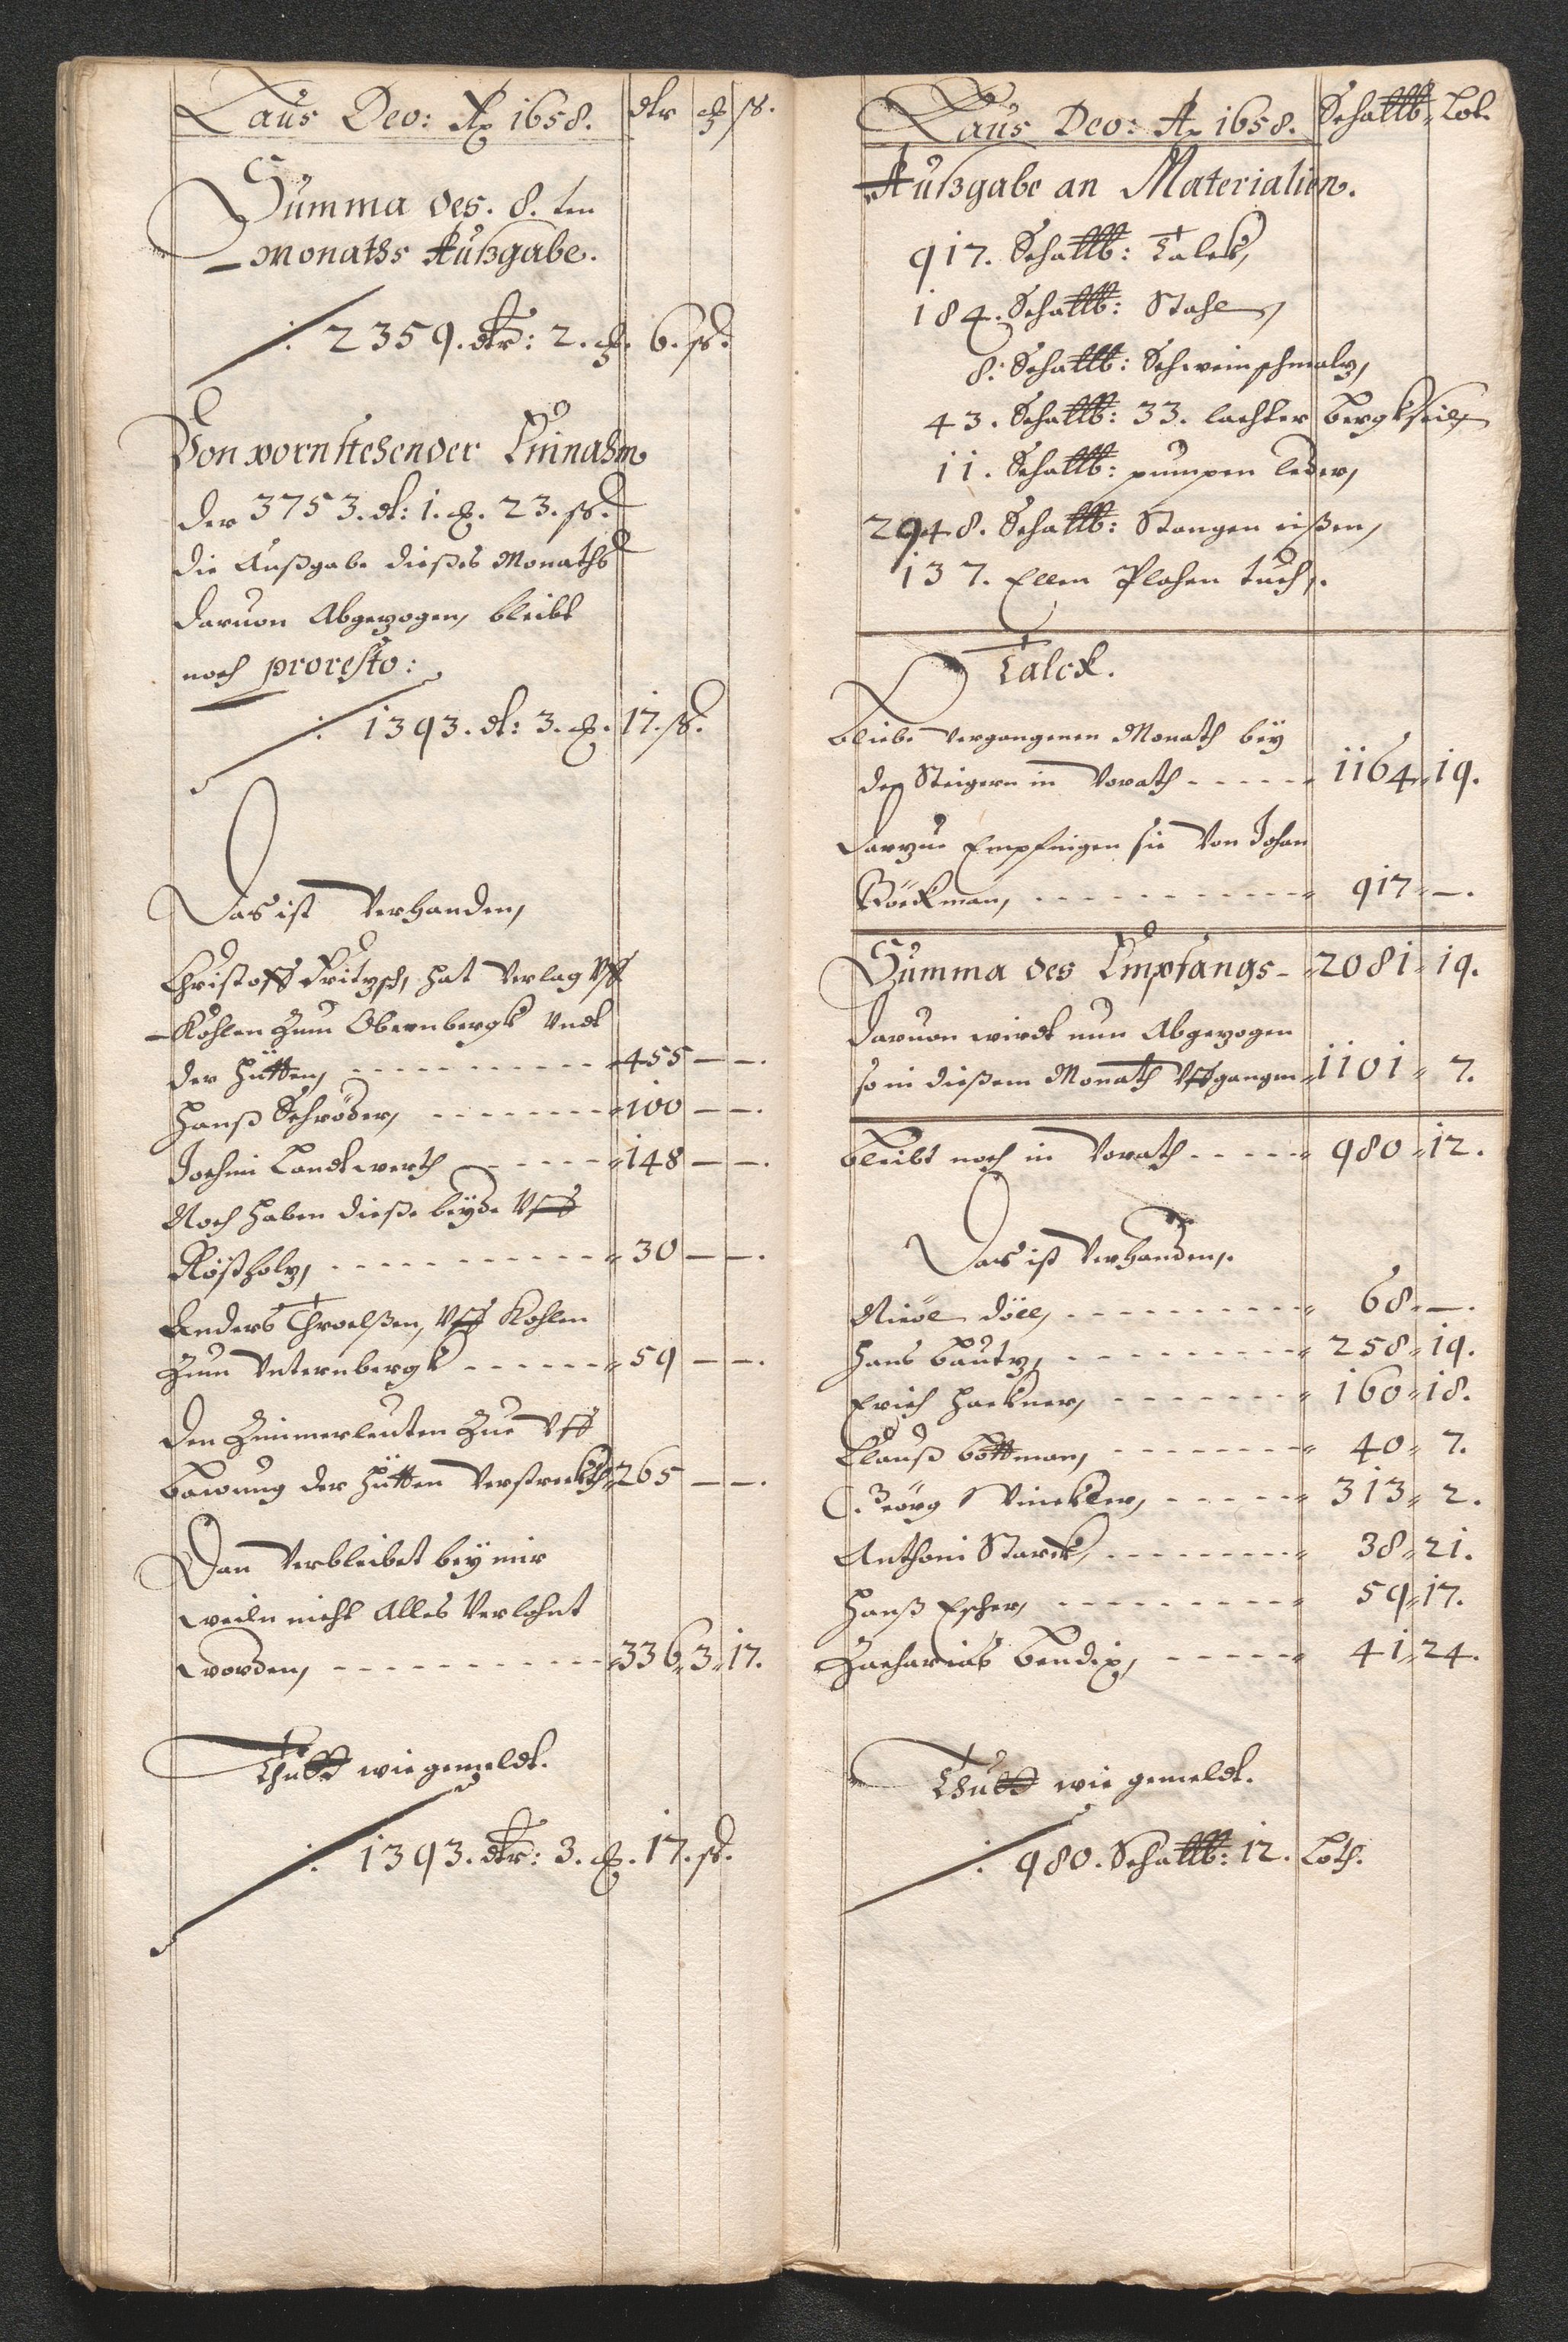 Laus Deo: Aō 1658. dlr ort ß.
Summa des. 8. ten
Monaths Außgabe.
⁒ 2359. dlr: 2. ort. 6. ß.
Von vornstehender Einnahm
der 3753. dl: 1. ort. 23. ß.
die Außgabe dießes Monaths
daruon Abgezogen, bleibt
noch pro resto:
⁒ 1393. dl: 3. ort. 17. ß.
Das ist Verhanden,
Christoff Fritzsch, hat Verlag Vff
Kohlen Zum Obernbergk Vndt
der Hütten, - - - 455 — —.
Hanß Schröder, - - - 100 — —.
Jochim Landtwerth - - - 148 — —.
Noch haben dieße beyde Vff
Röstholz, - - - 30 — —.
Anders Throelßen, Vff Kohlen
Zum Vnternbergk - - - 59 — —.
Den Zimmerleuten Zue Vff
bawung der Hütten Verstreckth 265 — —.
Dan Verbleibet bey mir
weiln nicht Alles Verlohnt
worden, - - - 336 " 3 " 17.
Thutt wie gemeldt.
⁒ 1393. dlr: 3. ort. 17. ß.
Laus Deo: Aō 1658. Schallb " Lot.
Außgabe an Materialien.
917. Schallb: Talck,
184. Schallb: Stahl,
8. Schallb: Schweinschmalz,
43. Schallb: 33. lachter bergkseil,
11. Schallb: pumpen leder,
2948. Schallb: Stangen eißen,
137. Ellen Plahen tuch,.
Talck.
Bliebe vergangenen Monath bey
den Steigern in Vorath - - - 1164 " 19.
Darzue Empfingen sie Von Johan
Böeckman, - - - 917 " —.
Summa des Empfangs - 2081 " 19.
Daruon wirdt nun Abgezogen
so in dießem Monath Vffgangen 1101 " 7.
Bleibt noch in Vorath - - - 980 " 12.
Das ist Verhanden,.
Niöel döll, - - - 68. —.
Hans bautz, - - - 258 " 19.
Erich Hackner, - - - 160 " 18.
Clauß bottman, - - - 40 " 7.
Georg Winckler, - - - 313 " 2.
Anthoni Starck, - - - 38 " 21.
Hanß Escher, - - - 59 " 17.
Zacharias bendix, - - - 41 " 24.
Thutt wie gemeldt.
⁒ 980. Schallb: 12. Loth.